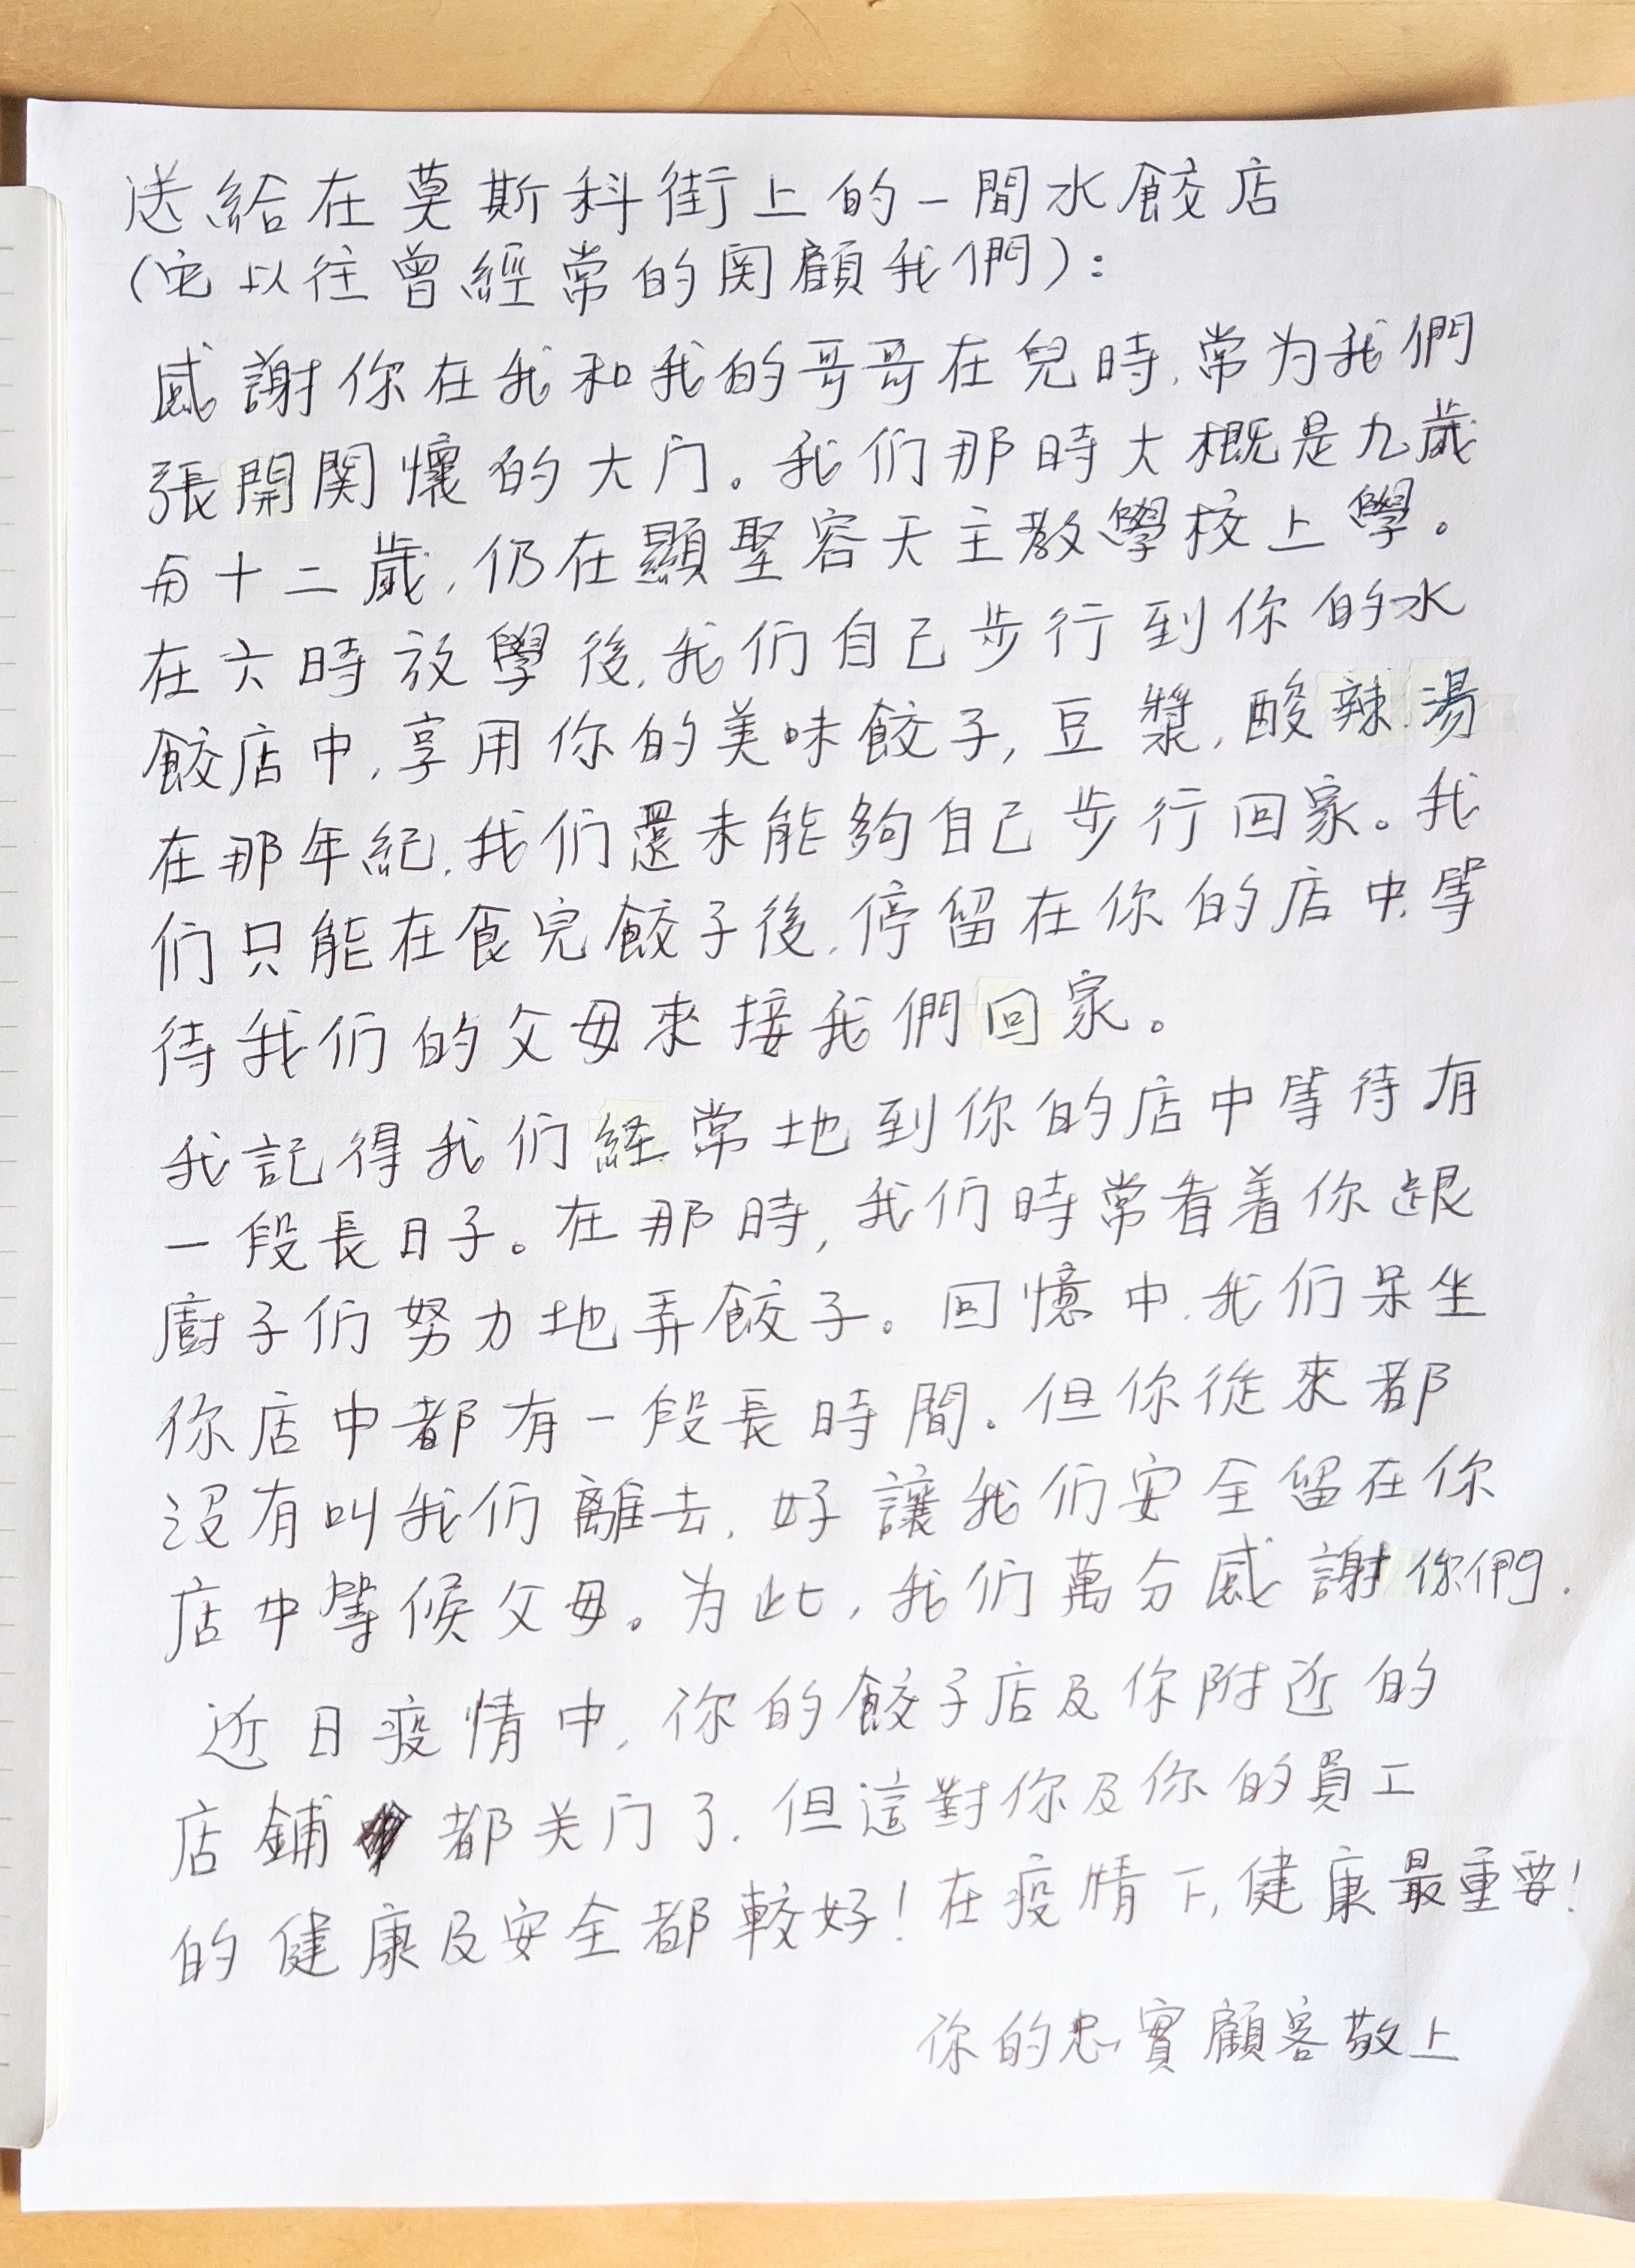 送給在莫斯科街上的一間水餃店
(它以往曾經常的関顧我們):
感謝你在我和我的哥哥在兒時,常为我們
張開関懷的大门。我们那時大概是九歲
与十二歲,仍在顯聖容天主教學校上學。
在六時放學後,我们自己步行到你的水
餃店中,享用你的美味餃子,豆漿,酸辣湯
在那年紀,我们還未能夠自己步行回家。我
们只能在食完餃子後,停留在你的店中,等
待我们的父母來接我們回家。
我記得我们経常地到你的店中等待有
一段長日子。在那時,我们時常看着你跟
廚子们努力地弄餃子。回憶中,我们呆坐
你店中都有一段長時間。但你從來都
沒有叫我们離去,好讓我们安全留在你
店中等候父母。为此,我们萬分感謝你們.
近日疫情中,你的餃子店及你附近的
店鋪都关门了.但這對你及你的員工
的健康及安全都較好!在疫情下,健康最重要!
你的忠實顧客敬上